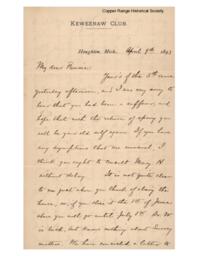 Copper Range Historical Society
KEWEENAW CLUB.
Houghton, Mich. April 9th 189
My dear Pennie:
Yours of the 5th came
yesterday afternoon, and I am very sorry to
hear that you had been a sufferer, and
hope that with the return of spring you
will be your old self again. If you have
any symptoms that are unusual, I
think you ought to consult
without delay. It is not quite clear
to me just when you think of closing the
house, or, if you close it the 1st of June
where you will go until July 1st.
is back, but knows nothing about
matter. We have a letter